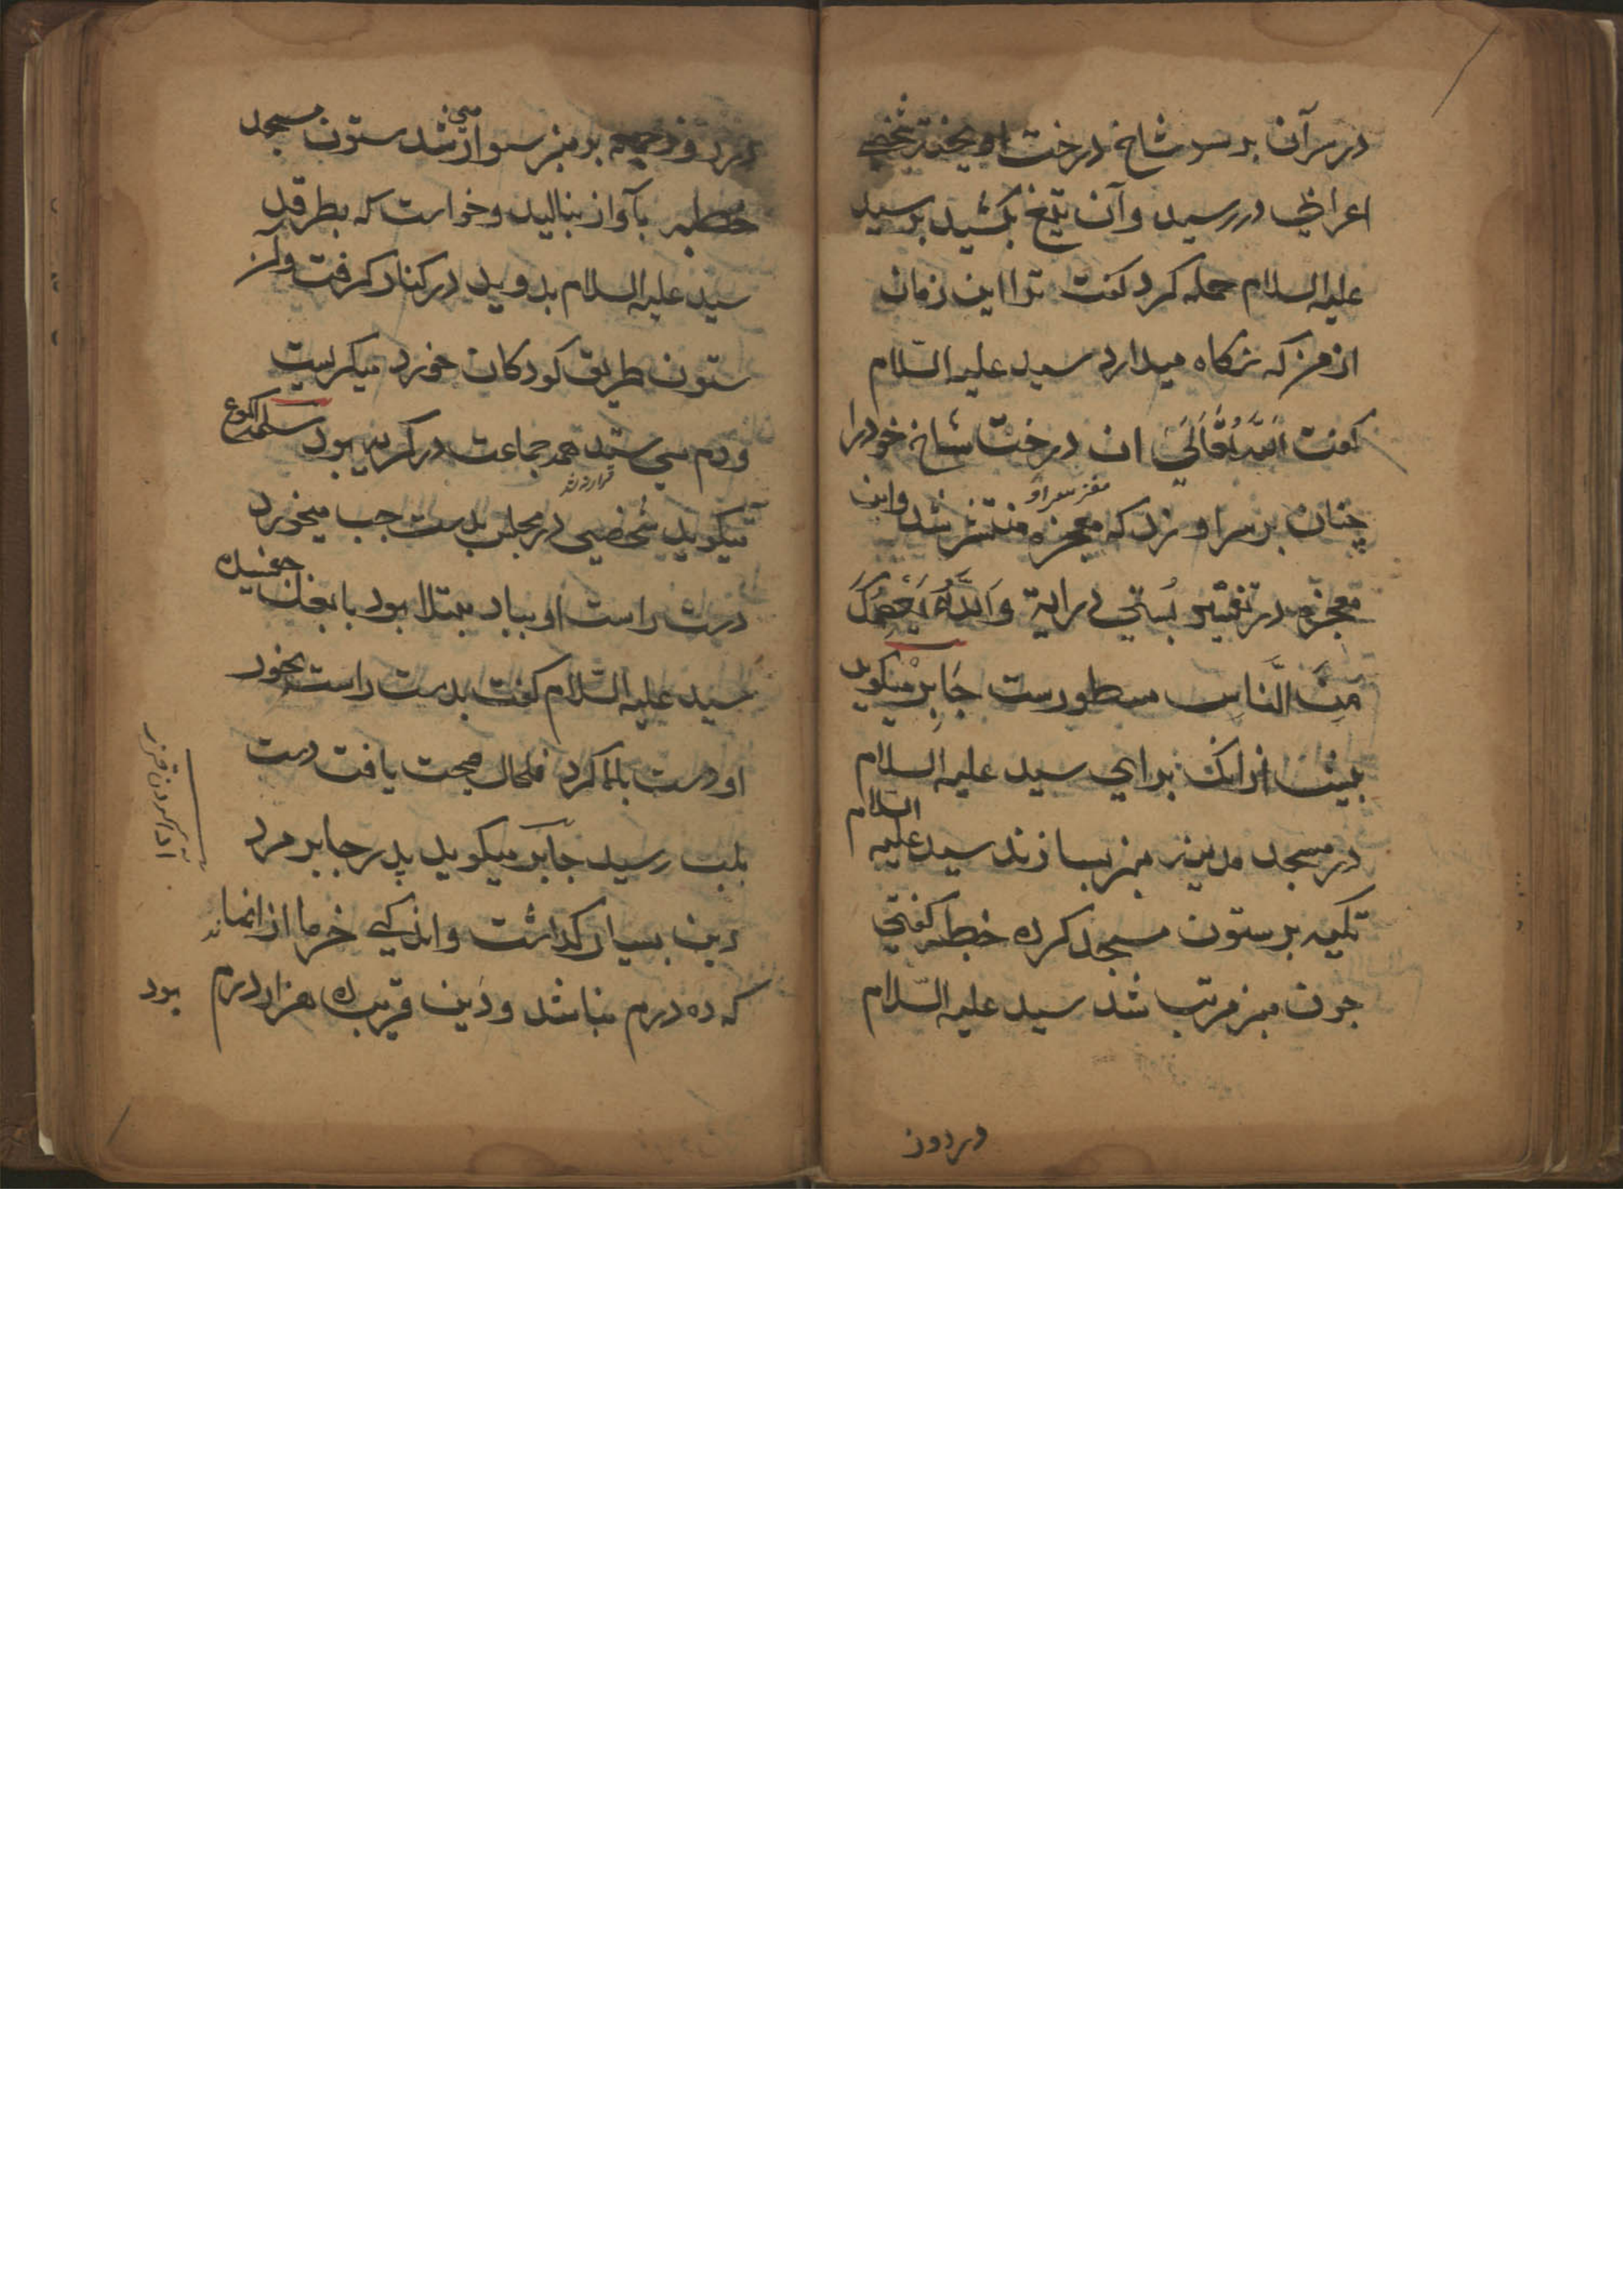 در سر آن بر سر شاخ درخت آویخته شخصی
اعرابی در رسید و آن تیغ بکشید بر سید
علیه السلام حمله کرد کفت ترا این زمان
از من که نکاه میدارد سید علیه السّلام
کفت اللّه تعالی ان درخت شاخ خود را
چنان بر سر او زد که مغز سر او منتشر شد و این
معجزه در تفسیر بُستی در ایة وَاللَّهُ يَعْصِمُكَ
مِنَ النَّاسِ مسطورست جَابِرْ میکوید
بیش از انک برای سید علیه السلام
در مسجد مدینه منبر بسازند سید علیه السّلام
تکیه بر ستون مسجد کرده خطبه کفتی
جون منبر مرتب شد سید علیه السّلام
در روز
در روز جمعه بر منبر سوار می شد ستون مسجد
بآواز بنالید و خواست که بطرقد
سید علیه السلام بدوید در کنار کرفت و ان
ستون طریق کودکان خورد میکریست
و دم می ستد همه جماعت در کریه بود سلمة اکوع
میکوید شخصی در مجلس بدست جب میخورد
دست راست او بباد مبتلا بود با بغل جفسیده
سید علیه السّلام کفت بدست راست بخور
او دست بالا کرد فلحال صحت یافت دست
بلب رسید جَابَر میکوید پدر جابر مرد
دین بسیار کداشت و اندکی خرما از ا نماند
که ده درم نباشد و دَین قریب ده هزار درم بود
ادا کردن قرض